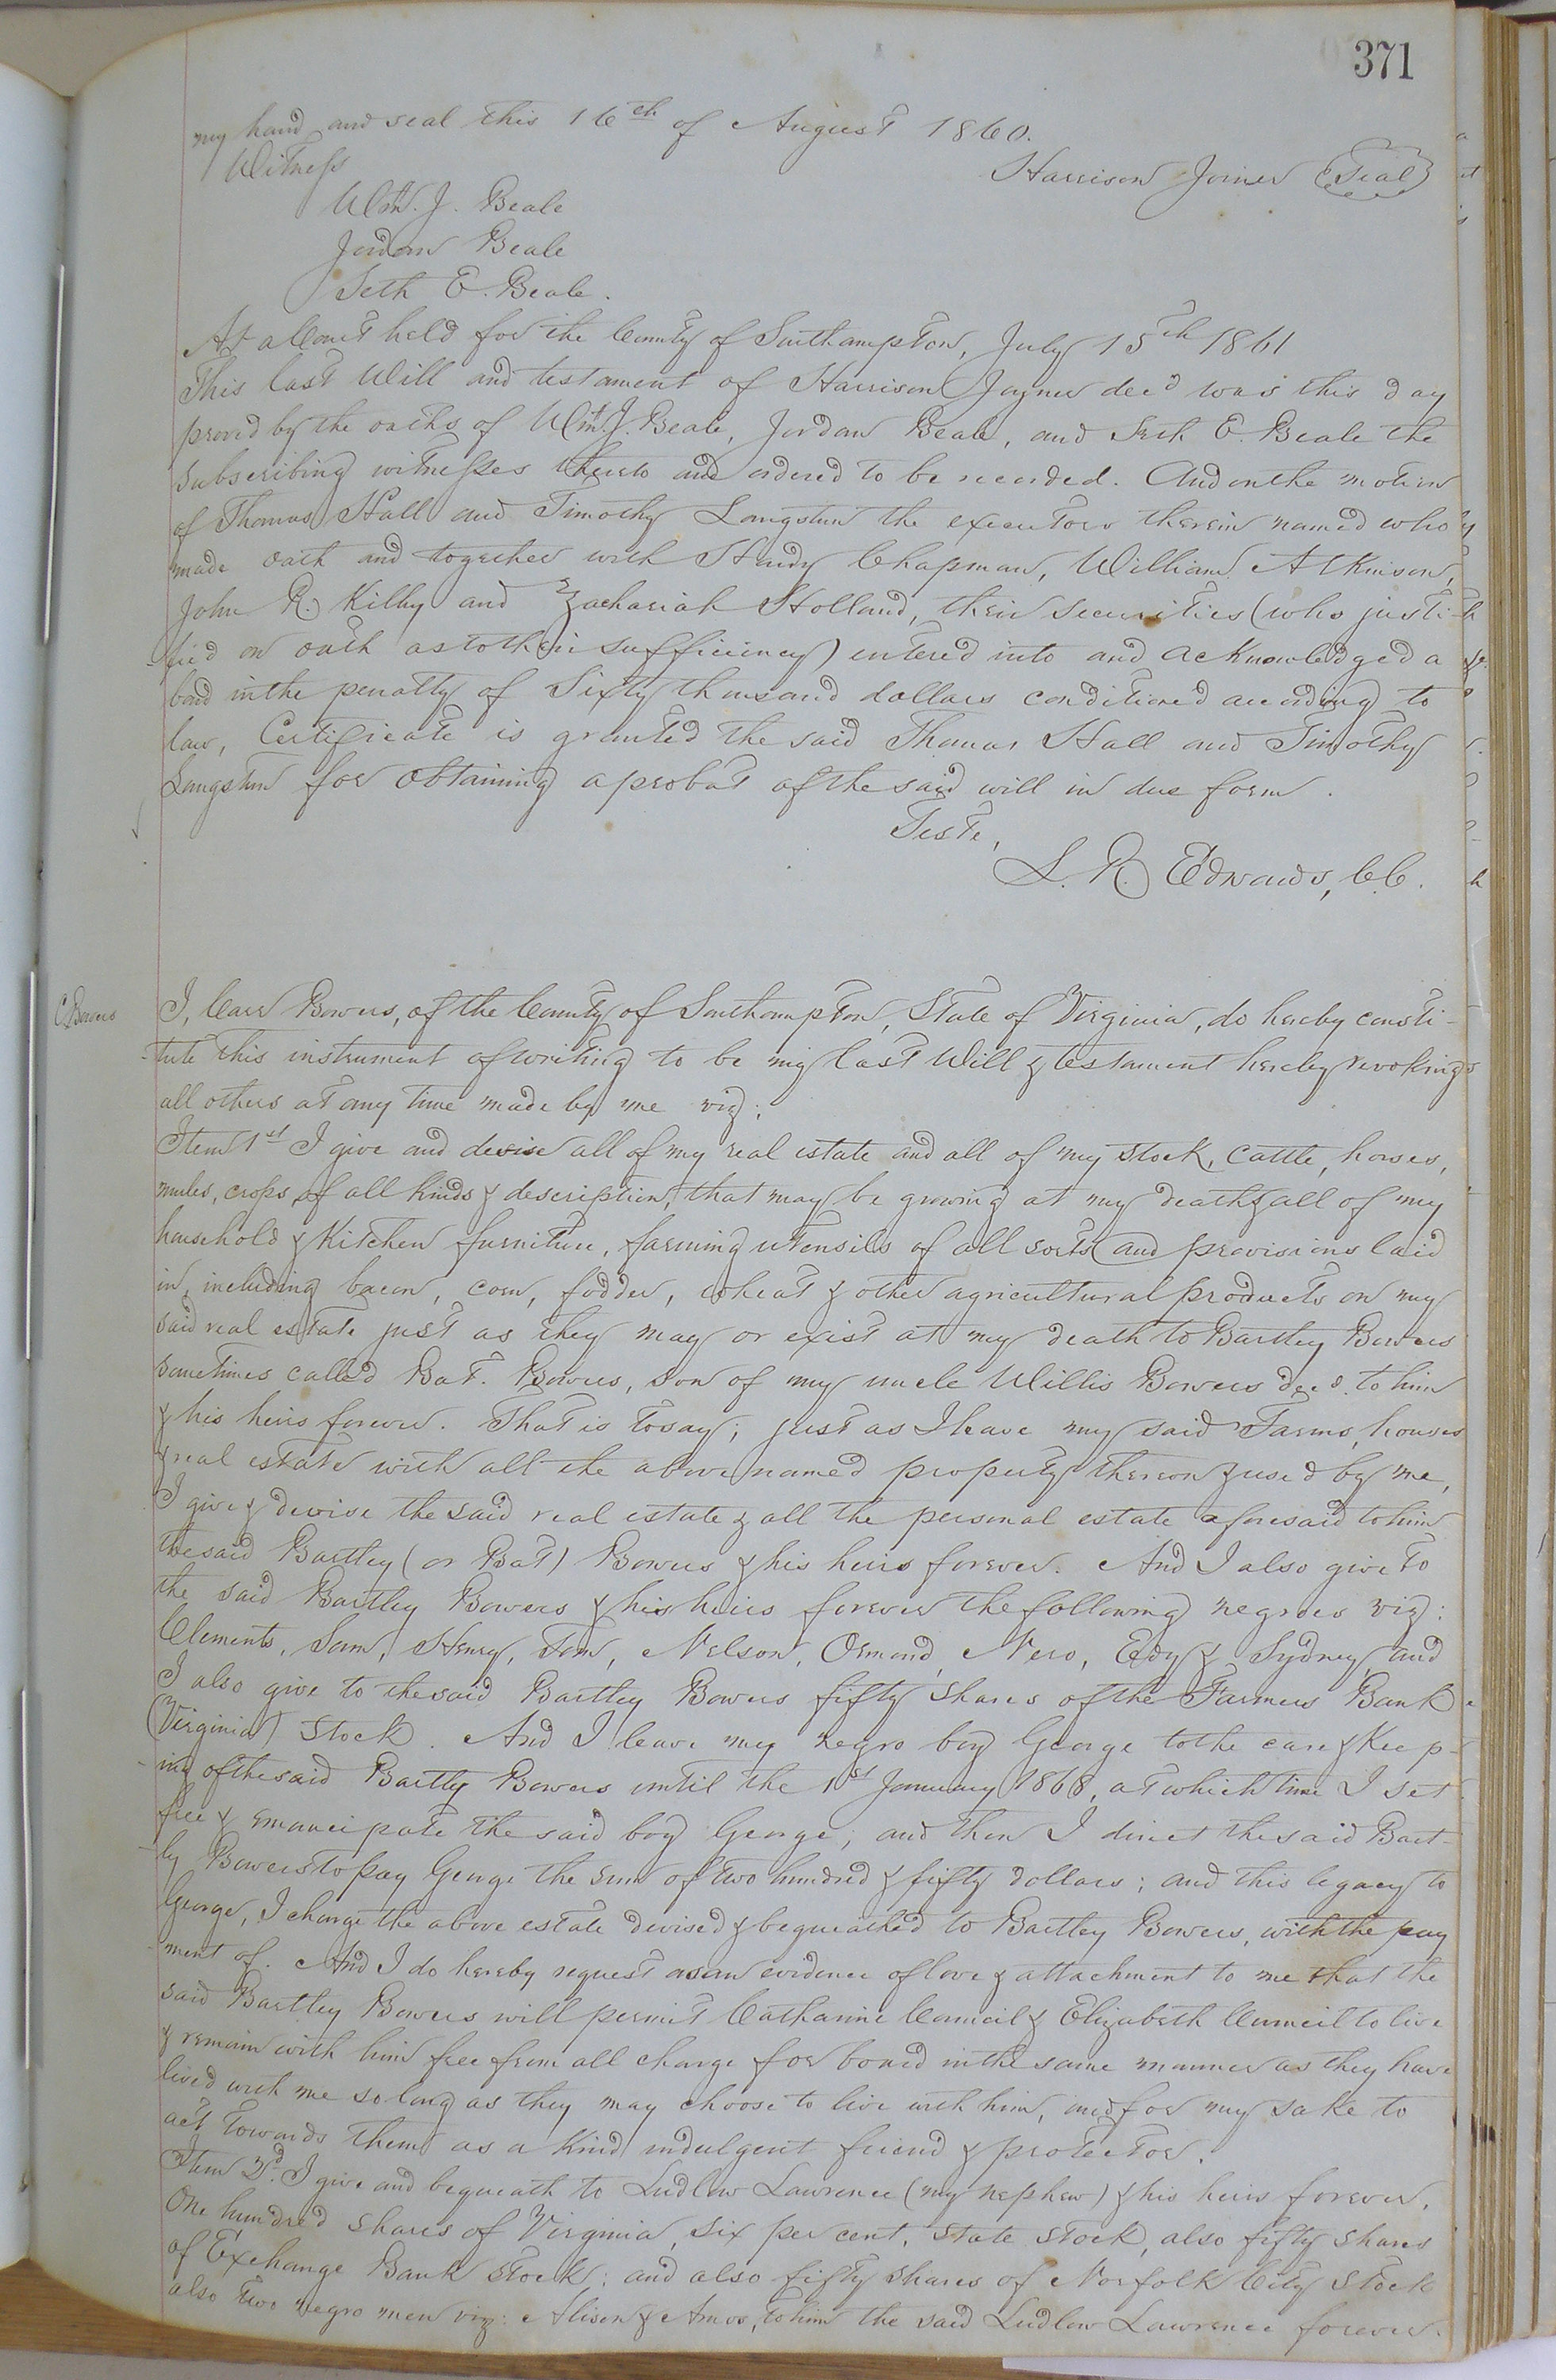 371
my hand and seal this 16th of August 1860.
Witness Harrison Joiner (Seal)
Wm. J. Beale
Jordan Beale
Seth E. Beale.
At a Court held for the County of Southampton, July 15th 1861
This last Will and testament of Harrison Joyner decd was this day
proved by the oaths of Wm. J. Beale, Jordan Beale, and Seth E. Beale the
subscribing witnesses thereto and ordered to be recorded. And on the motion
of Thomas Hall and Timothy Langston the executors therein named who
made oath and together with Hardy Chapman, William Atkinson,
John R. Kilby and Zachariah Holland, their securities (who justi-
-fied on oath as to their sufficiency) entered into and acknowledged a
bond in the penalty of Sixty thousand dollars conditioned according to
law, Certificate is granted the said Thomas Hall and Timothy
Langston for obtaining a probat of the said will in due form.
Teste,
L. R. Edwards, C.C.
C Bowers
I, Carr Bowers, of the County of Southampton, State of Virginia, do hereby consti-
-tute this instrument of writing to be my last Will & testament hereby revoking
all others at any time made by me viz:
Item 1st I give and devise all of my real estate and all of my stock, cattle, horses,
mules, crops of all kinds & description, that may be growing at my death & all of my
household & Kitchen furniture, farming utensils of all sorts and provisions laid
in, including bacon, corn, fodder, wheat & other agricultural products on my
said real estate just as they may or exist at my death to Bartley Bowers
sometimes called Bat. Bowers, son of my uncle Willis Bowers decd. to him
& his heirs forever. That is to say; just as I leave my said Farms, houses
& real estate with all the above named property thereon & used by me,
I give & devise the said real estate & all the personal estate aforesaid to him
the said Bartley (or Bat) Bowers & his heirs forever. And I also give to
the said Bartley Bowers & his heirs forever the following negroes viz:
Clements, Sam, Henry, Tom, Nelson, Ormond, Nero, Edy & Sydney, and
I also give to the said Bartley Bowers fifty shares of the Farmers Bank
(Virginia) stock. And I leave my negro boy George to the care & Keep-
-ing of the said Bartly Bowers until the 1st January 1868, at which time I set
free & emancipate the said boy George; and then I direct the said Bart-
-ly Bowers to pay George the sum of two hundred & fifty dollars; and this legacy to
George, I charge the above estate devised & bequeathed to Bartley Bowers, with the pay
-ment of. And I do hereby request as an evidence of love & attachment to me that the
said Bartley Bowers will permit Catharine Council & Elizabeth Council to live
& remain with him free from all charge for board in the same manner as they have
lived with me so long as they may choose to live with him, and for my sake to
act towards them as a Kind indulgent friend & protector.
Item 2d. I give and bequeath to Ludlow Lawrence (my nephew) & his heirs forever,
One hundred shares of Virginia, six per cent, State stock, also fifty shares
of Exchange Bank stock; and also fifty shares of Norfolk City Stock
also two negro men viz: Alison & Amos, to him the said Ludlow Lawrence forever.